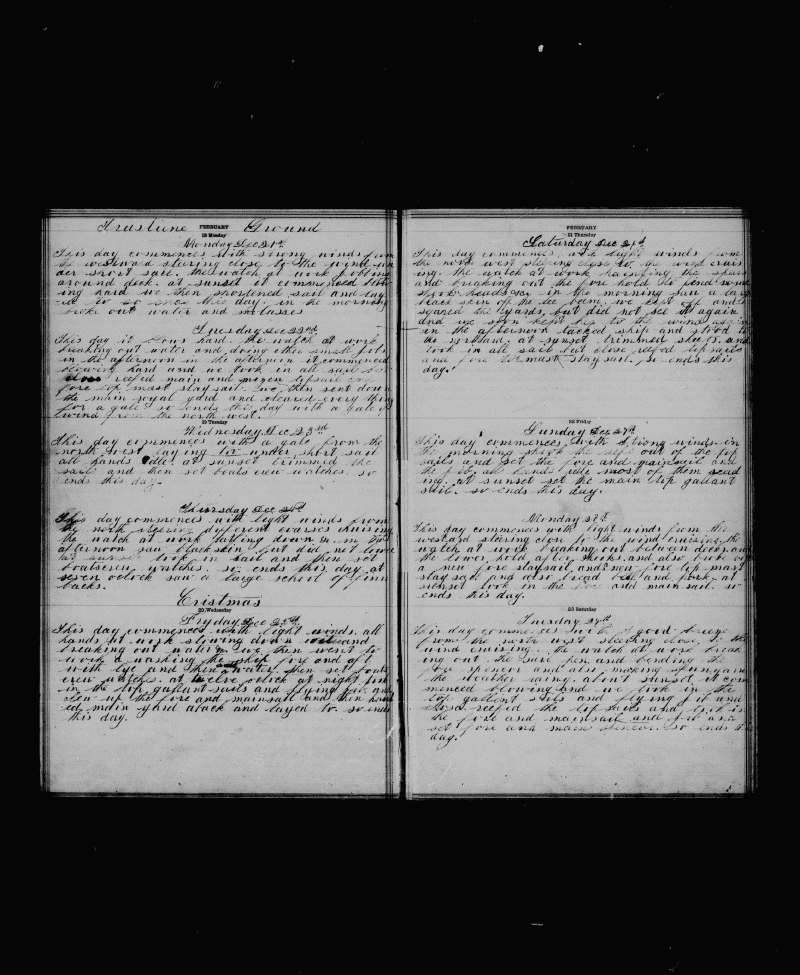 Ground
FEBRUARY
18 Monday
Monday Dec 21st
This day commences with strong winds from
the westward steering close to the wind un
der short sail. the watch at work jobbing
around deck. at sunset it commenced blow
ing hard we then shortened sail and lay
to so ends this day. in the morning
broke out water and molasses
Tuesday Dec 22nd
This day it blows hard. the watch at work
breaking out water and doing other small jobs
in the afternoon it commenced
blowing hard and we took in all sail but
close reefd main and mizen topsail and
fore top mast stay sail. we then sent down
the main royal yard and cleared every thing
for a gale so ends this day with a gale of
wind from the north west.
19 Tuesday
Wednesday Dec 23rd
This day commences with a gale from the
north west laying to under short sail
all hands idle. at sunset trimmed the
sail and set boats crew watches. so
ends this day
Thursday Dec 24th
This day commences with light winds from
the north steering different coarses cruising
the watch at work in the
afternoon saw blackskin but did not lower
took in sail and then set
boatscrew watches. so ends this day at
seven oclock saw a large school of finn
backs.
Cristmas
20 Wednesday
Fryday Dec 25th
This day commences with light winds. all
hands at work stowing down and
breaking out water we then went to
work a washing the ship fore and aft
with lye and then water, then set boats
crew watches. at twelve oclock at night
in the top gallant sails and flying jib and
clew up the fore and mainsail and then haul
ed main yard aback and layed to. so ends
this day.
FEBRUARY
21 Thursday
Saturday Dec 26th
This day commences with light winds from
the nord west steering close to the wind cruis
ing. the watch at work the spars
and breaking out the fore hold to send some
in the morning saw a large
on the lee beam, we kept off and
sqared the yards, but did not see it again
and we soon kept her to the wind again
in the afternoon tacked ship and stood to
at sunset trimmed she is and
took in all sail but close reefd topsails
and fore top mast stay sail. so ends this
day.
22 Friday
Sunday Dec 27th
This day commences with strong winds in
the morning shook the reefs out of the top
sails and set the fore and mainsail and
the jib all hands idle most of them read
ing. at sunset set the main top gallant
sail. so ends this day.
Monday 28th
This day commences with light winds from the
westard staring close to the wind cruising. the
watch at work breaking out between decks and
the lower hold after and also broke out
a new fore staysail and new fore top mast
stay sail and also bread and pork. at
sunset took in the fore and main sail. so
ends this day.
23 Saturday
Tuesday 29th
This day commences with a good breeze
from the north west steering close to the
wind cruising. the watch at work break
ing out the and bending the
fore spencer and also making spunyarn
the weather rainy. about sunset it com
menced blowing and we took in the
top gallant sails and flying jib and
close reefed the topsails and took in
the fore and mainsail and jib and
set fore and main spencer. so ends this
day.